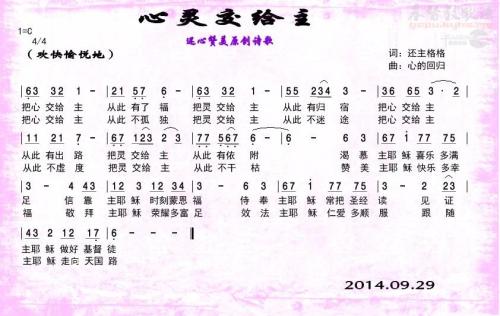 心灵交给主
1=C
4/4
远心赞美原创诗歌
（欢快愉悦地）
词：还主格格
曲：心的回归
63 32 1 - 21 57 6 - 63 32 1 - 21 5 234 3 - 36 65 3 · 2
把心 交给 主 从此 有了 福 把灵 交给 主 从此 有归 宿 把心 交给 主
把心 交给 主 从此 不孤 独 把灵 交给 主 从此 不迷 途 把心 交给 主
11 21 7 - 67 123 2 - 77 567 6 - 3 - 67 17 77 75
从此 有出 路 把灵 交给 主 从此 有依 附 渴 慕 主耶 稣 喜乐 多满
从此 不虚 度 把灵 交给 主 从此 不干 枯 赞 美 主耶 稣 快乐 多幸
3 - 43 12 3 12 35 6 - 63 67 17 77 75 3 - 2 23
足 信 靠 主耶 稣 时刻 蒙恩 福 侍 奉 主耶 稣 常把 圣经 读 见 证
福 敬 拜 主耶 稣 荣耀 多富 足 效 法 主耶 稣 仁爱 多顺 服 跟 随
43 2 12 17 6 -
主耶 稣 做好 基督 徒
主耶 稣 走向 天国 路
2014.09.29